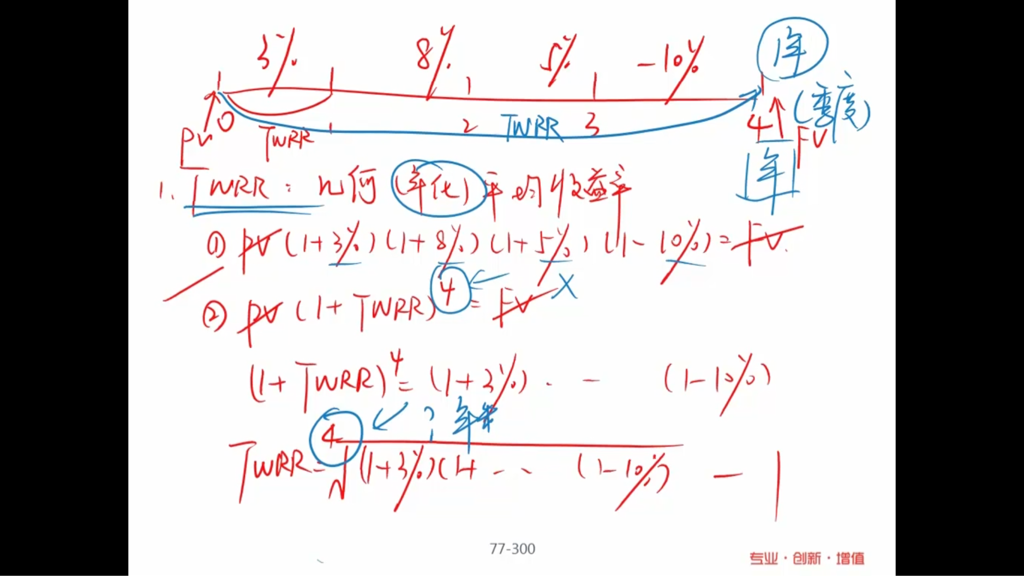 3% 8% 5% -10% 1年
PV 0 TWRR 1 2 TWRR 3 4 FV (季度)
年
1. TWRR：几何(年化)平均收益率
① PV(1+3%)(1+8%)(1+5%)(1-10%)=FV.
② PV(1+TWRR)^4=FV X
(1+TWRR)^4=(1+3%)..- (1-10%)
? 年
TWRR=4√(1+3%)(1+.. (1-10%) -1
77-300
专业·创新·增值